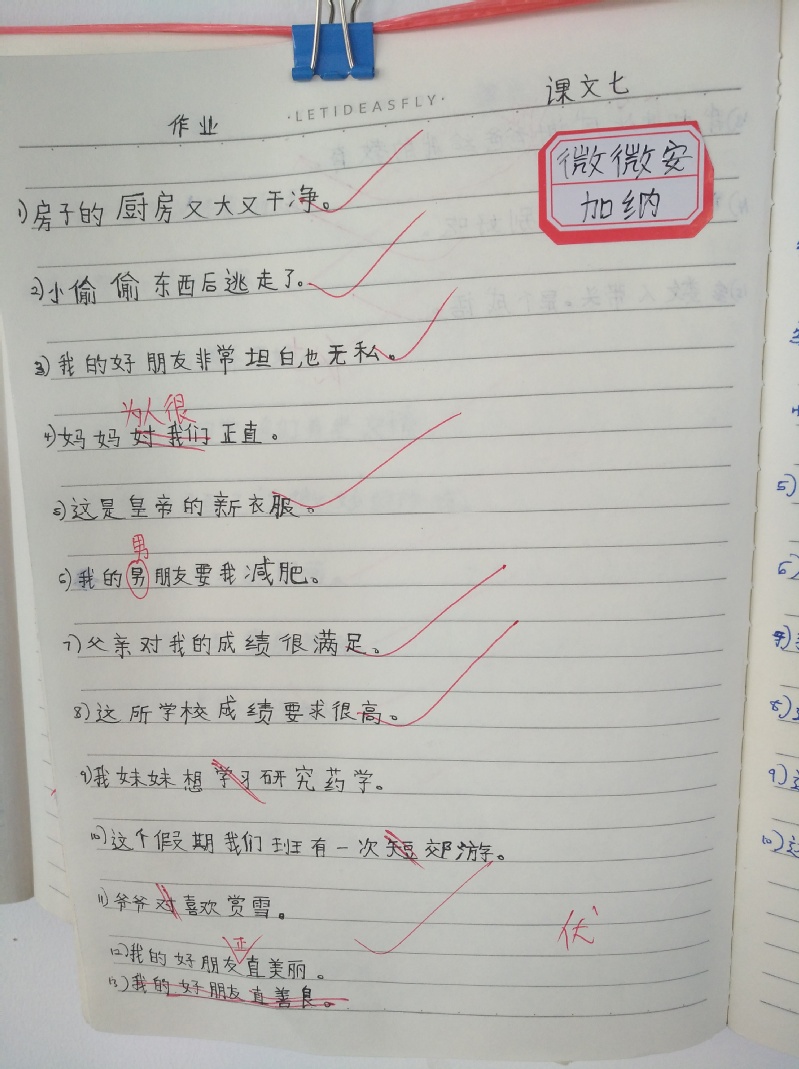 ·LETIDEASFLY·
课文七
作业
微微安
加纳
1)房子的厨房又大又干净。
2)小偷偷东西后逃走了。
3)我的好朋友非常坦白,也无私。
为人很
4)妈妈对我们正直。
5)这是皇帝的新衣服。
男
6)我的男朋友要我减肥。
7)父亲对我的成绩很满足。
8)这所学校成绩要求很高。
9)我妹妹想学习研究药学。
10)这个假期我们班有一次短郊游。
11)爷爷对喜欢赏雪。
正
12)我的好朋友直美丽。
13)我的好朋友直善良。
5)
6)
8)
9)
10)这